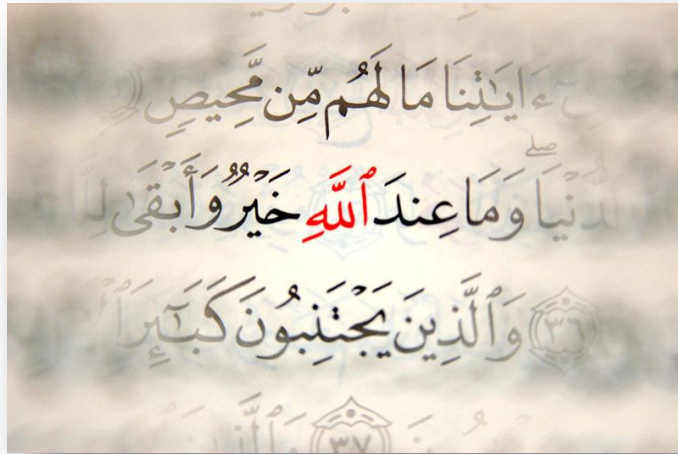 ءَايَـٰتِنَا مَا لَهُم مِّن مَّحِيصٍ
ٱلدُّنْيَا ۖ وَمَا عِندَ ٱللَّهِ خَيْرٌ وَأَبْقَىٰ
٣٦ وَٱلَّذِينَ يَجْتَنِبُونَ كَبَـٰٓئِرَ
٣٧ وَٱلَّذِينَ